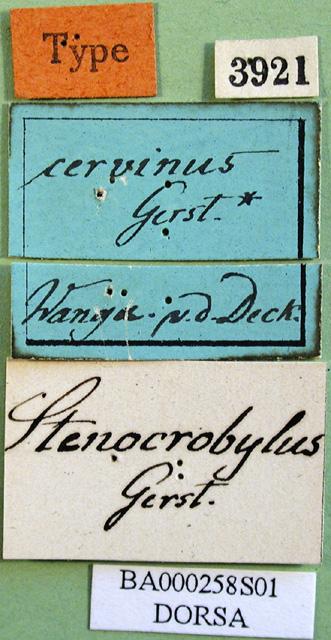 Type
3921
cervinus
Gerst.*
Wanga. v.d. Deck.
Stenocrobylus
Gerst.
BA000258S01
DORSA